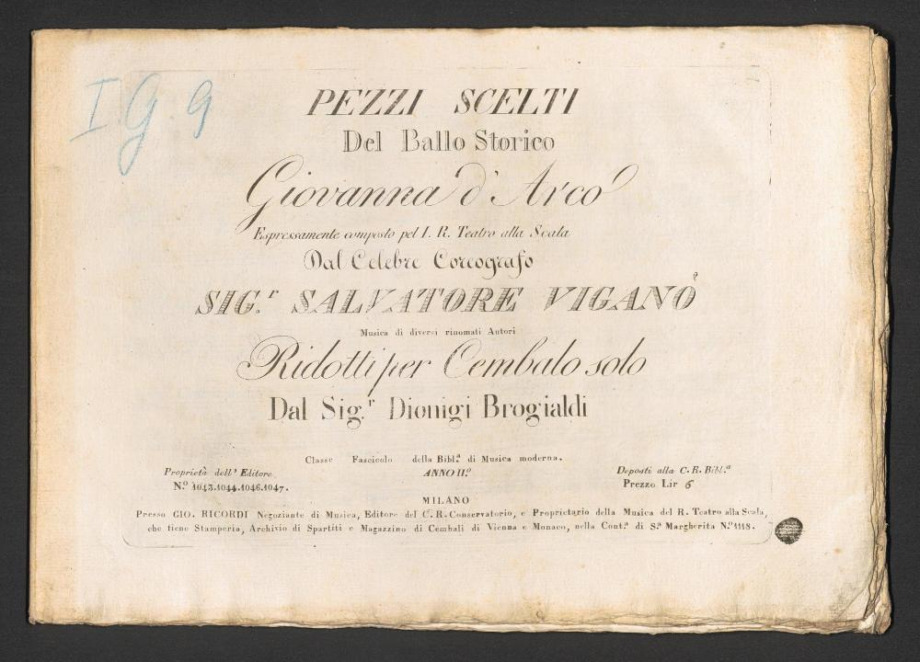 I G. 9
PEZZI SCELTI
Del Ballo Storico
Giovanna d'Arco
Espressamente composto pel I. R. Teatro alla Scala
Dal Celebre Coreografo
SIG.r SALVATORE VIGANÒ
Musica di diversi rinomati Autori
Ridotti per Cembalo solo
Dal Sig.r Dionigi Brogialdi
Classe Fascicolo della Bibl.a di Musica moderna.
Proprietà dell'Editore. ANNO II.o Deposti alla C. R. Bibl.a
N.o 1043.1044.1046.1047. Prezzo Lir 6
MILANO
Presso GIO. RICORDI Negoziante di Musica, Editore del C. R. Conservatorio, e Proprietario della Musica del R. Teatro alla Scala,
che tiene Stamperia, Archivio di Spartiti e Magazzino di Cembali di Vienna e Monaco, nella Cont.a di S.a Margherita N.o 1118.